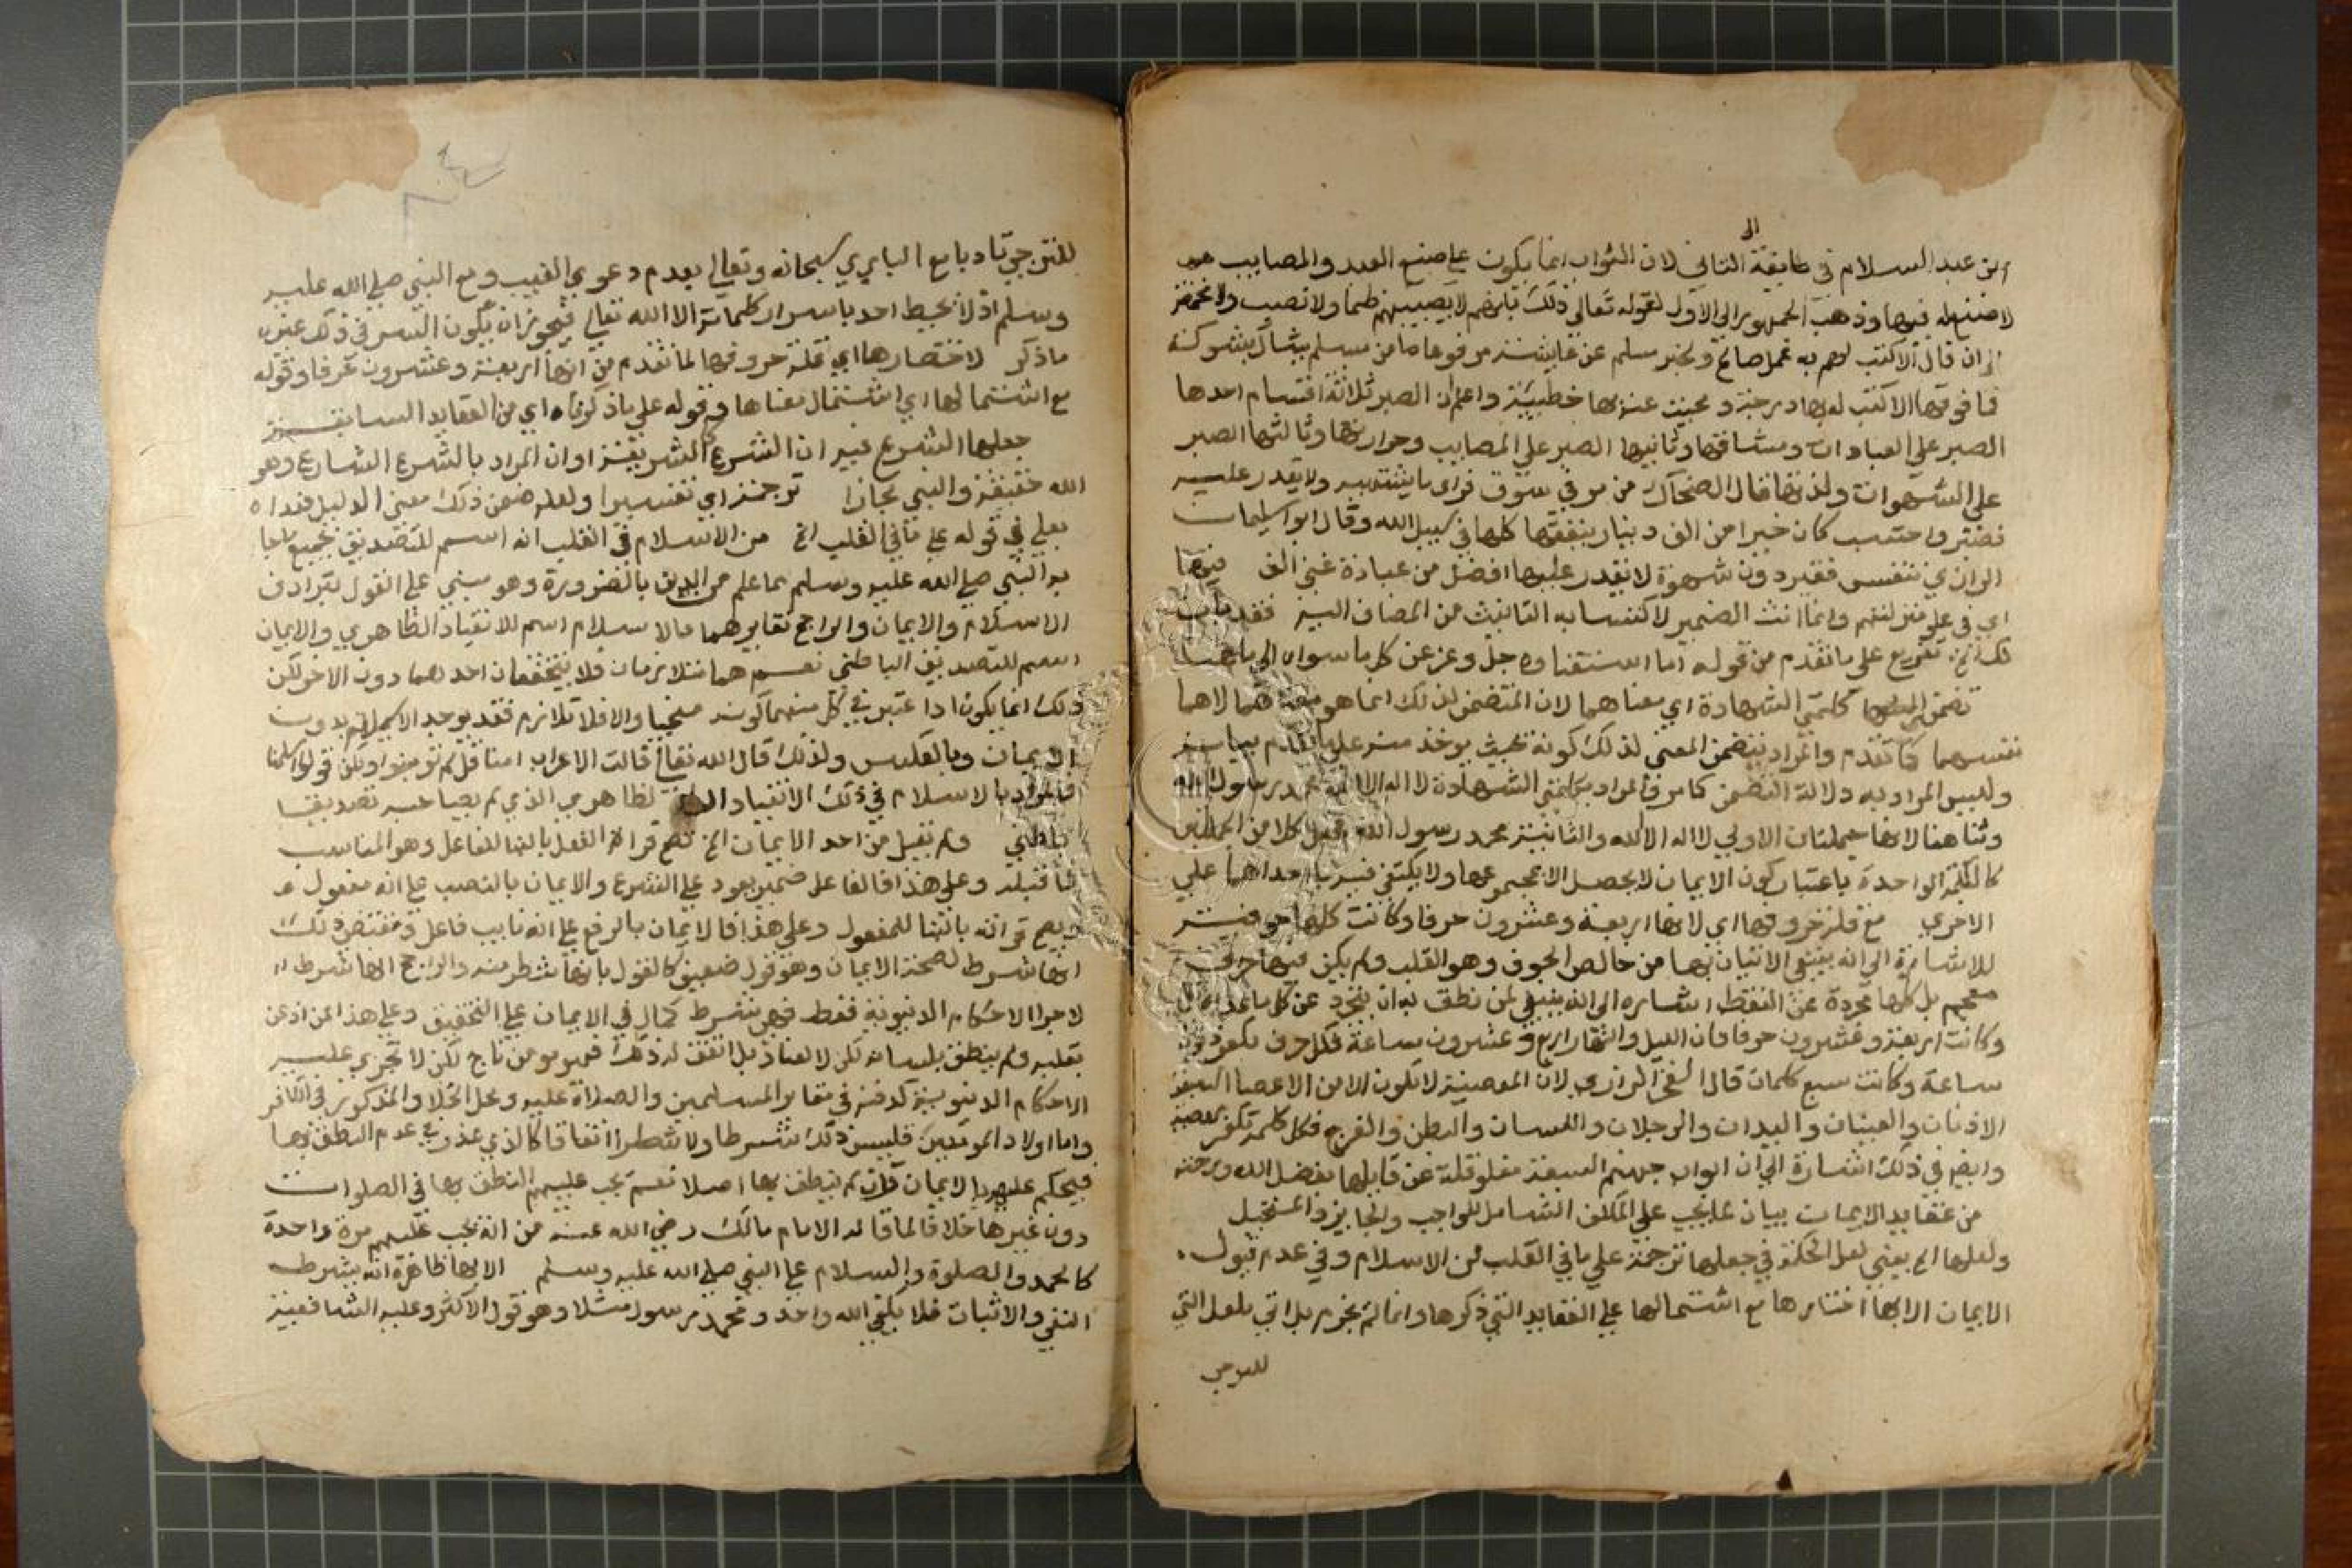 الى
ابن عبد السلام في طايفة الثاني لان الثواب انما يكون على صنع العبد والمصايب هو
لا صنع له فيها وذهب الجمهور الى الاول لقوله تعالى ذلك بانهم لا يصيبهم ظما ولا نصب ولا مخمصة
الى ان قال الا كتب لهم به عمل صالح ولخبر مسلم عن عايشة مرفوعا ما من مسلم يشاك بشوكة
فما فوقها الا كتب له بها درجة ومحيت عنه بها خطيئة واعلم ان الصبر ثلاثة اقسام احدها
الصبر على العبادات ومشاقها وثانيها الصبر على المصايب وحرارتها وثالثها الصبر
على الشهوات ولذتها قال الضحاك من مر في سوق فراى ما يشتهيه ولا يقدر عليه
فصبر واحتسب كان خيرا من الف دينار ينفقها كلها في سبيل الله وقال ابو سليمان
الداراني تنفس فقير دون شهوة لا يقدر عليها افضل من عبادة غني الف فيها
اي في على منزلتهم وانما انث الضمير لاكتسابه التانيث من المضاف اليه فقد بان
لك الخ تفريع على ما تقدم من قوله اما استغناوه جل وعز عن كل ما سواه الى ما هنا
تضمن كلمتي الشهادة اي معناهما لان المتضمن لذلك انما هو معناهما لا هما
نفسهما كما تقدم والمراد بتضمن المعنى لذلك كونه بحيث يوخذ منه على ما تقدم بيانه
وليس المراد به دلالة التضمن كما مر والمراد بكلمتي الشهادة لا اله الا الله محمد رسول الله
وثنا هنا لانها جملتان الاولى لا اله الا الله والثانية محمد رسول الله فجعل كلا من الجملتين
كالكلمة الواحدة باعتبار كون الايمان لا يحصل الا بمجموعها ولا يكتفى فيه باحداهما على
الاخرى مع قلة حروفها اي لانها اربعة وعشرون حرفا وكانت كلها جوفية
للاشارة الى انه ينبغي الاتيان بها من خالص الجوف وهو القلب ولم يكن فيها حرف
معجم بل كلها مجردة عن النقط اشارة الى انه ينبغي لمن نطق به ان يتجرد عن كل ما عدا الله
وكانت اربعة وعشرون حرفا فان الليل والنهار اربع وعشرون ساعة فكل حرف يكفر ذنوب
ساعة وكانت سبع كلمات قال الفخر الرازي لان المعصية لا تكون الا من الاعضا السبعة
الاذنان والعينان واليدان والرجلان واللسان والبطن والفرج فكل كلمة تكفر معصية
وايضا في ذلك اشارة الى ان ابواب جهنم السبعة مغلوقة عن قايلها بفضل الله ورحمته
من عقايد الايمان بيان لما يجب على المكلف الشامل للواجب والجايز والمستحيل
ولعلها الخ يعني لعل الحكمة في جعلها ترجمة على ما في القلب من الاسلام وفي عدم قبول
الايمان الا بها اختيارها مع اشتمالها على العقايد التي ذكرها وانما لم يجزم بل اتى بلعل التي
للترجي
للترجي تادبا مع الباري سبحانه وتعالى بعدم دعوى الغيب ومع النبي صلى الله عليه
وسلم اذ لا يحيط احد باسرار كلماته الا الله تعالى فيجوز ان يكون السر في ذلك غير
ما ذكر لاختصارها اي قلة حروفها لما تقدم من انها اربعة وعشرون حرفا وقوله
مع اشتمالها اي اشتمال معناها وقوله على ما ذكرناه اي من العقايد السابقة
جعلها الشرع فيه ان الشرع الشريعة او ان المراد بالشرع الشارع وهو
الله حقيقة والنبي مجازا ترجمة اي تفسيرا ولعله ضمن ذلك معنى الدليل فعداه
بعلى في قوله على ما في القلب الخ من الاسلام في القلب انه اسم للتصديق بجميع ما جا
به النبي صلى الله عليه وسلم مما علم من الدين بالضرورة وهو مبني على القول بترادف
الاسلام والايمان والراجح تغايرهما فالاسلام اسم للانقياد الظاهري والايمان
اسم للتصديق الباطني نعم هما متلازمان فلا يتحققان احدهما دون الاخر لكن
ذلك انما يكون اذا اعتبر في كل منهما كونه منجيا والا فلا تلازم فقد يوجد الاسلام بدون
الايمان وبالعكس ولذلك قال الله تعالى قالت الاعراب امنا قل لم تومنوا ولكن قولوا اسلمنا
فالمراد بالاسلام في ذلك الانقياد الظاهري الذي لم يصاحبه تصديق
باطني ولم يقبل من احد الايمان الخ يصح قراة الفعل بالبنا للفاعل وهو المناسب
لما قبله وعلى هذا فالفاعل ضمير يعود على الشرع والايمان بالنصب على انه مفعول
ويصح قراته بالبنا للمفعول وعلى هذا فالايمان بالرفع على انه نايب فاعل ومقتضى ذلك
انها شرط لصحة الايمان وهو قول ضعيف كالقول بانها شطر منه والراجح انها شرط
لاجرا الاحكام الدنيوية فقط فهي شرط كمال في الايمان على التحقيق وعلى هذا من اذعن
بقلبه ولم ينطق بلسانه لكن لا لعناد بل اتفق له ذلك فهو مومن ناج لكن لا تجري عليه
الاحكام الدنيوية كدفنه في مقابر المسلمين والصلاة عليه ومحل الخلاف المذكور في الكافر
واما اولاد المومنين فليس ذلك شرطا ولا شطرا اتفاقا كالذي عذر في عدم النطق بها
فيحكم عليهم بالايمان وان لم ينطق بها اصلا نعم يجب عليهم النطق بها في الصلوات
دون غيرها خلافا لما قاله الامام مالك رضي الله عنه من انه يجب عليهم مرة واحدة
كالحمد والصلوة والسلام على النبي صلى الله عليه وسلم الا بها ظاهره انه يشرط
النفي والاثبات فلا يكفي الله واحد ومحمد رسول مثلا وهو قول الاكثر وعليه الشافعية